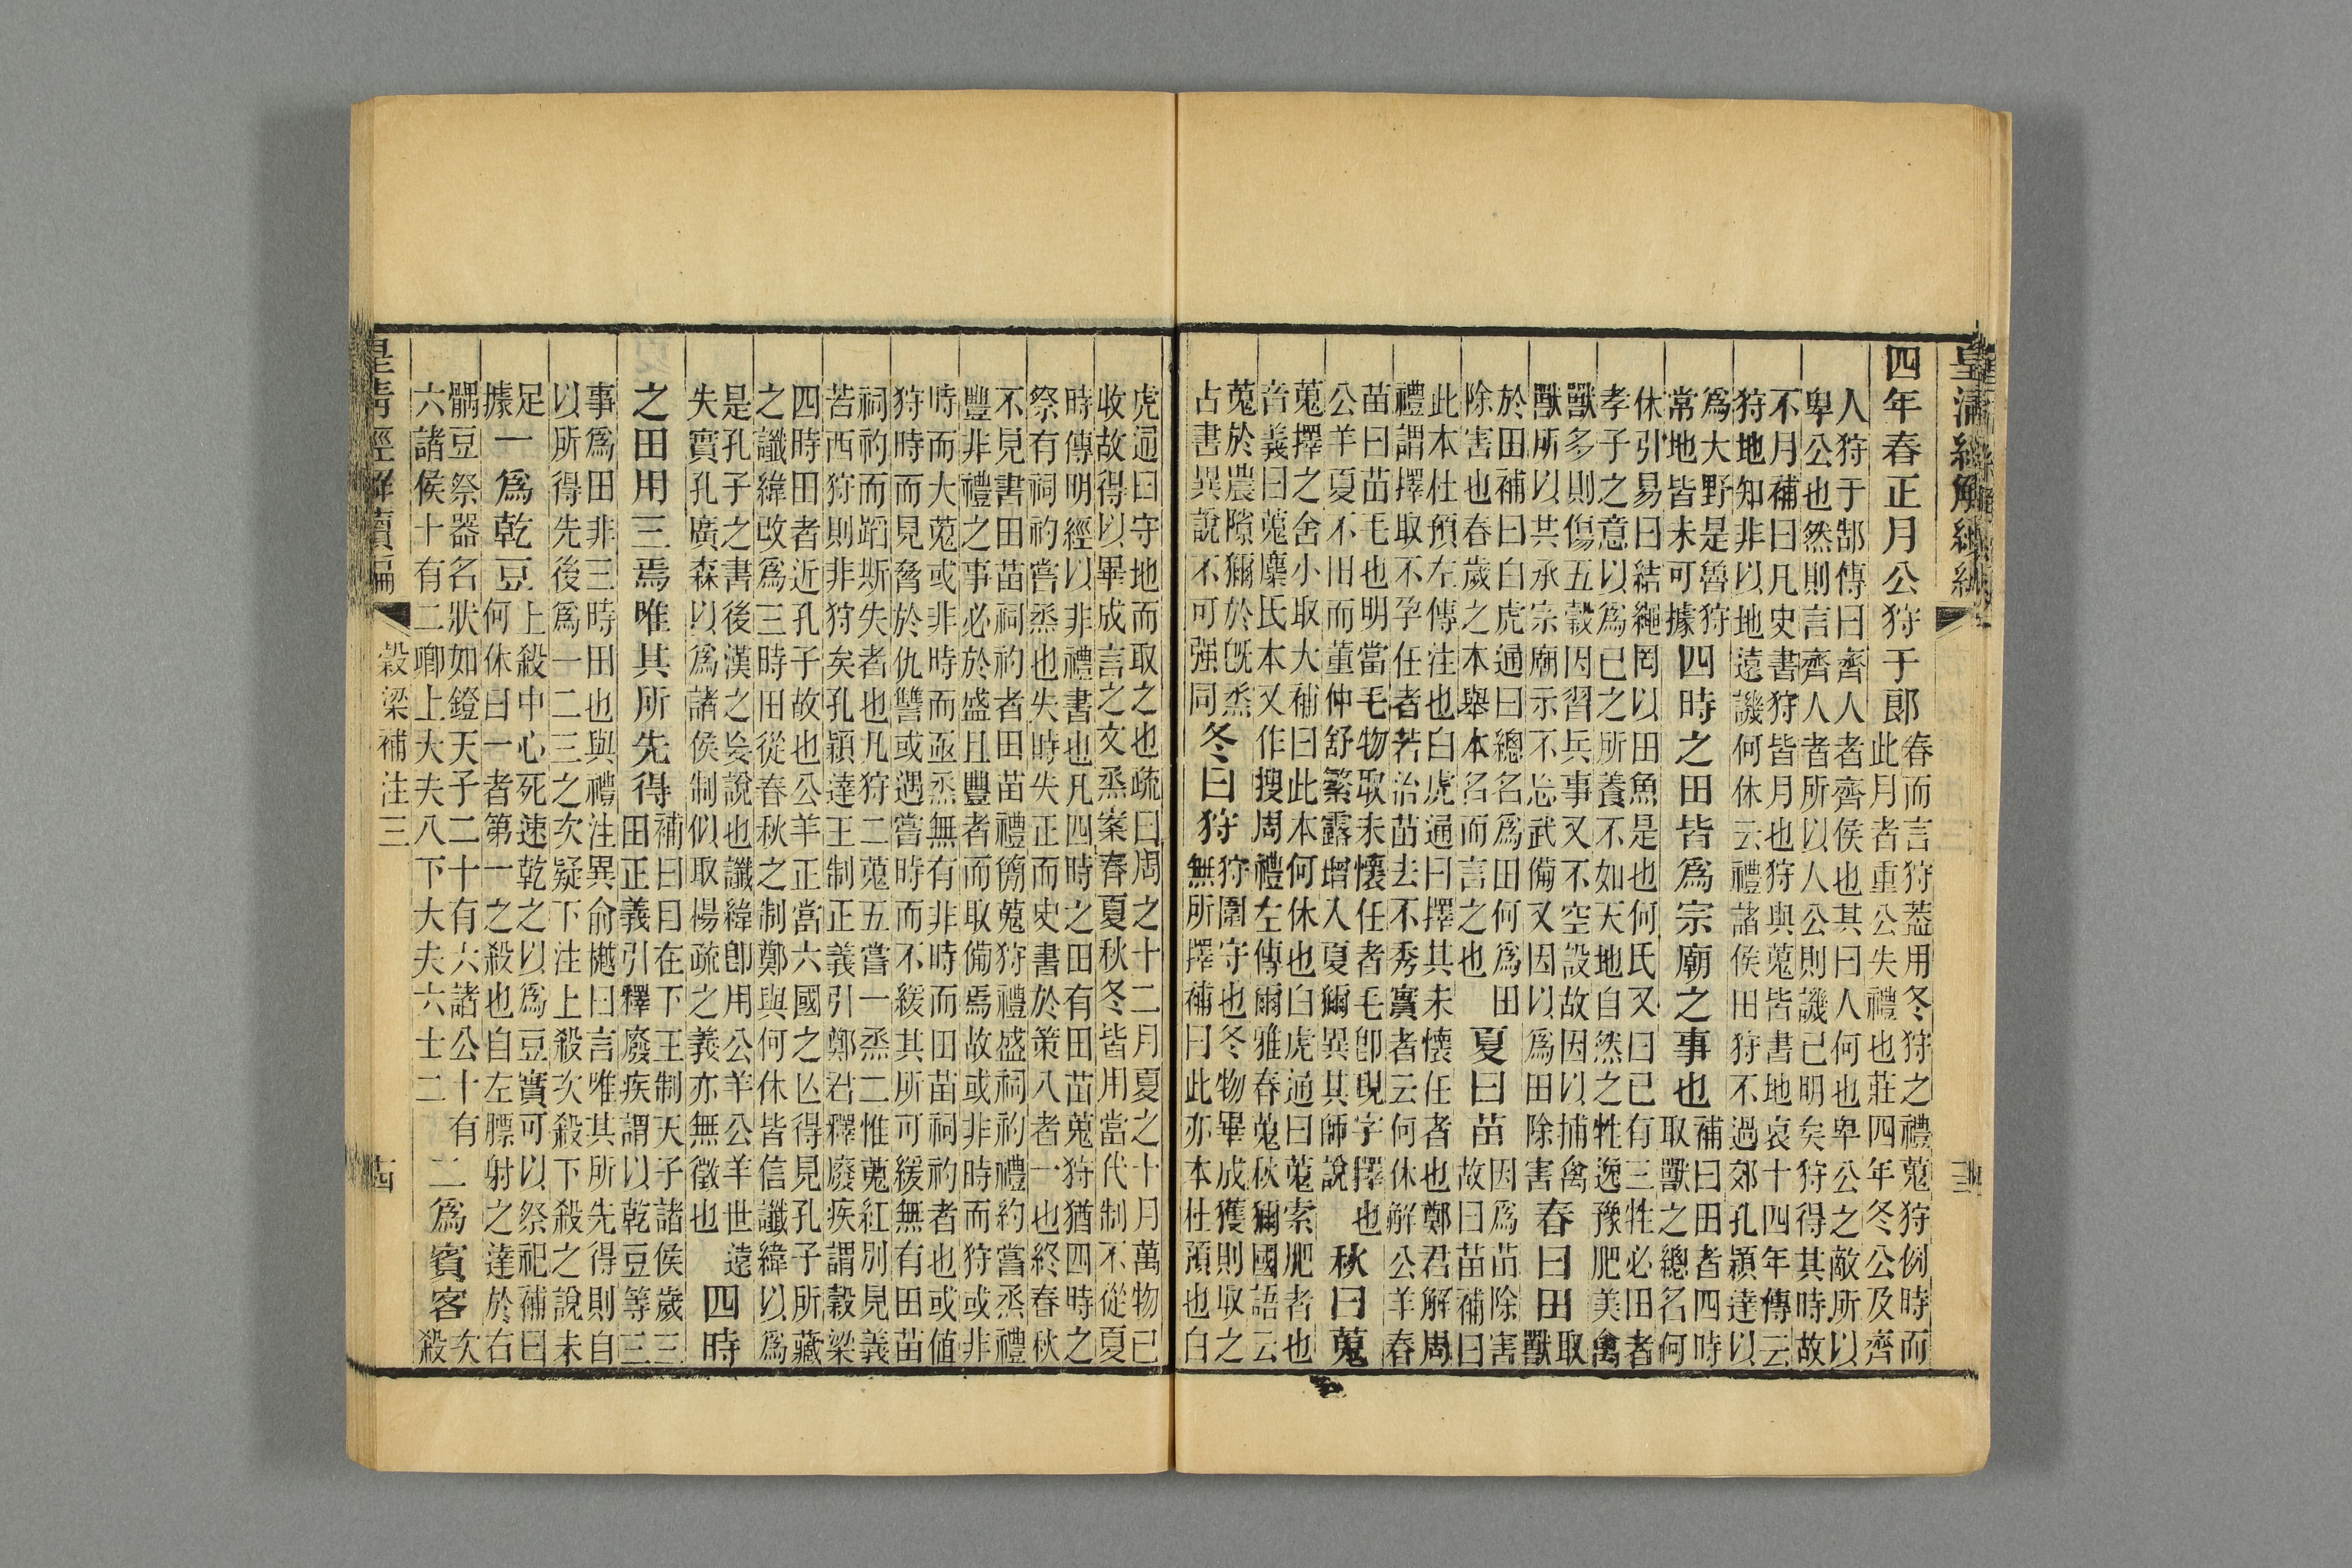 皇清經解續編
四年春正月公狩于郎
春而言狩葢用冬狩之禮蒐狩例時而
此月者重公失禮也莊四年冬公及齊
人狩于郜傳曰齊人者齊侯也其曰人何也卑公之敵所以
卑公也然則言齊人者所以人公則譏已明矣狩得其時故
不月補曰凡史書狩皆月也狩與蒐皆書地哀十四年傳云
狩地知非以地遠譏何休云禮諸侯田狩不過郊孔穎達以
爲大野是魯狩
常地皆未可據
四時之田皆爲宗廟之事也
補曰田者四時
取獸之總名何
休引易曰結繩罔以田魚是也何氏又曰已有三牲必田者
孝子之意以爲已之所養不如天地自然之牲逸豫肥美禽
獸多則傷五穀因習兵事又不空設故因以捕禽
獸所以共承宗廟示不忘武備又因以爲田除害
春曰田
取
獸
於田補曰白虎通曰總名爲田何爲田
除害也春歲之本舉本名而言之也
夏曰苗
因爲苗除害
故曰苗補曰
此本杜預左傳注也白虎通曰擇其未懷任者也鄭君解周
禮謂擇取不孕任者若治苗去不秀實者云何休解公羊春
苗曰苗毛也明當毛物取未懷任者毛卽現字擇也
公羊夏不田而董仲舒繁露增入夏獮異其師說
秋曰蒐
蒐擇之舍小取大補曰此本何休也白虎通曰蒐索肥者也
音義曰蒐麋氏本又作搜周禮左傳爾雅春蒐秋獮國語云
蒐於農隙獮於旣烝
占書異說不可强同
冬曰狩
狩圍守也冬物畢成獲則取之
無所擇補曰此亦本杜預也白
虎通曰守地而取之也疏曰周之十二月夏之十月萬物已
收故得以畢成言之文烝案春夏秋冬皆用當代制不從夏
時傳明經以非禮書也凡四時之田有田苗蒐狩猶四時之
祭有祠礿嘗烝也失時失正而史書於策八者一也終春秋
不見書田苗祠礿者田苗禮簡蒐狩禮盛祠礿禮約嘗烝禮
豐非禮之事必於盛且豐者而取備焉故或非時而狩或非
時而大蒐或非時而亟烝無有非時而田苗祠礿者也或値
狩時而見脅於仇讐或遇嘗時而不緩其所可緩無有田苗
祠礿而蹈斯失者也凡狩二蒐五嘗一烝二惟蒐紅別見義
若西狩則非狩矣孔穎達王制正義引鄭君釋廢疾謂穀梁
四時田者近孔子故也公羊正當六國之亾得見孔子所藏
之讖緯改爲三時田從春秋之制鄭與何休皆信讖緯以爲
是孔子之書後漢之妄說也讖緯卽用公羊公羊世遠
失實孔廣森以爲諸侯制似取楊疏之義亦無徵也
四時
之田用三焉唯其所先得
補曰曰在下王制天子諸侯歲三
田正義引釋廢疾謂以乾豆等三
事爲田非三時田也與禮注異俞樾曰言唯其所先得則自
以所得先後爲一二三之次疑下注上殺次殺下殺之說未
足
據
一爲乾豆
上殺中心死速乾之以爲豆實可以祭祀補曰
何休曰一者第一之殺也自左膘射之達於右
髃豆祭器名狀如鐙天子二十有六諸公十有
六諸侯十有二卿上大夫八下大夫六士二
二爲賓客
次
殺
皇清經解續編
穀梁補注三